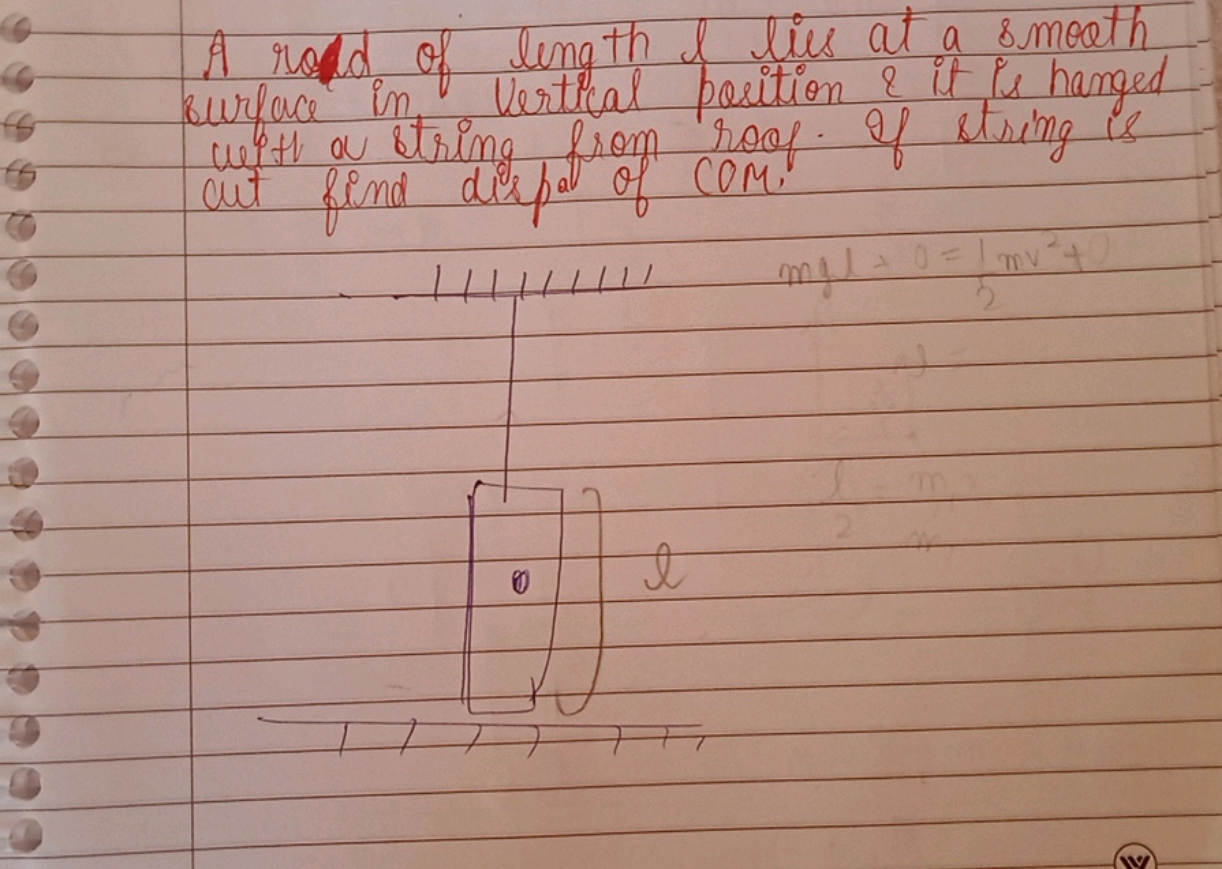 A rod of length l lies at a smooth
surface in vertical position & it is hanged
with a string from roof. If string is
cut find dispa of COM.
mgl + 0 = 1/2 mv² + 0
l